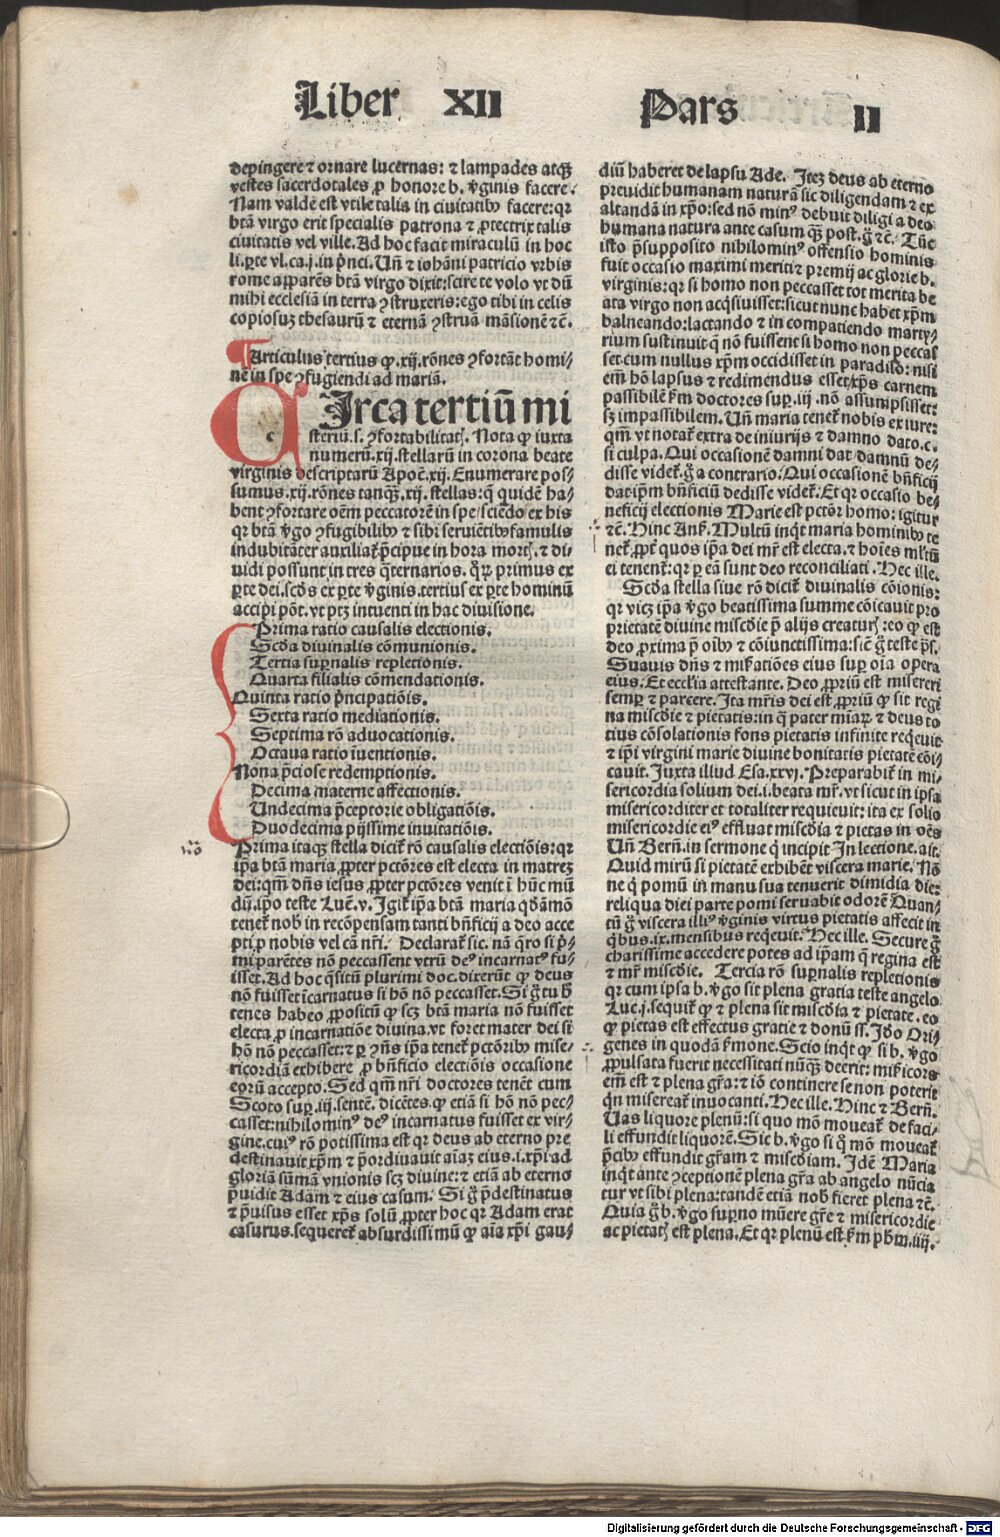 Liber XII Pars II
depingere ⁊ ornare lucernas: ⁊ lampades atqꝫ
vestes sacerdotales ꝓ honore b. v̄ginis facere.
Nam valde est vtile talia in ciuitatibꝰ facere: qꝛ
btā virgo erit specialis patrona ⁊ ꝓtectrix talis
ciuitatis vel ville. Ad hoc facit miraculū in hoc
li. ꝑte vl. ca. j. in pͥnci. Vn̄ ⁊ iohāni patricio vrbis
rome apparēs btā virgo dixit: scire te volo vt dū
mihi ecclesiā in terra ꝯstruxeris: ego tibi in celis
copiosuꝫ thesaurū ⁊ eternā ꝯstruā māsionē ⁊c̄.
Articulus tertius ꝙ .xij. rōnes ꝯfortāt homi⸗
nē in spe ꝯfugiendi ad mariā.
CIrca tertiū mi
steriū .s. ꝯfortabilitatꝭ. Nota ꝙ iuxta
numerū .xij. stellarū in corona beate
virginis descriptarū Apoc̄. xij. Enumerare pos⸗
sumus .xij. rōnes tanqꝫ .xij. stellas: q̄ quidē ha⸗
bent ꝯfortare oēm peccatorē in spe / sciēdo ex his
qꝛ btā v̄go ꝯfugibilibꝰ ⁊ sibi seruiētibꝰ famulis
indubitāter auxiliat̄ pͥcipue in hora mortꝭ. ⁊ di⸗
uidi possunt in tres q̄ternarios. qͦꝝ primus ex
ꝑte dei. scd̄s ex ꝑte v̄ginis. tertius ex ꝑte hominū
accipi pōt. vt ptꝫ intuenti in hac diuisione.
Prima ratio causalis electionis.
Scd̄a diuinalis cōmunionis.
Tertia suꝑnalis repletionis.
Quarta filialis cōmendationis.
Quinta ratio pͥncipatiōis.
Sexta ratio mediationis.
Septima rō aduocationis.
Octaua ratio īuentionis.
Nona p̄ciose redemptionis.
Decima materne affectionis.
Undecima p̄ceptorie obligatiōis.
Duodecima pijssime inuitatiōis.
Prima itaqꝫ stella dicit̄ rō causalis electiōis: qꝛ
ip̄a btā maria ꝓpter pctōres est electa in matreꝫ
dei: qm̄ dn̄s iesus ꝓpter pctōres venit ī hūc mū
dū. ip̄o teste Luc̄. v. Igit̄ ip̄a btā maria qͦdāmō
tenet̄ nobꝭ in recōpensam tanti bn̄ficij a deo acce
pti ꝓ nobis vel cā nr̄i. Declarat̄ sic. nā q̄ro si pͥ⸗
mi parētes nō peccassent vtrū deꝰ incarnatꝰ fu⸗
isset. Ad hoc q̄sitū plurimi doc. dixerūt ꝙ deus
nō fuisset īcarnatus si hō nō peccasset. Si gͦ tu h̄
tenes habeo ꝓpositū ꝙ scꝫ btā maria nō fuisset
electa ꝓ incarnatiōe diuina. vt foret mater dei si
hō nō peccasset: ⁊ ꝑ ꝯn̄s ip̄a tenet̄ pctōribꝰ mise⸗
ricordiā exhibere ꝓ bn̄ficio electiōis occasione
eoꝝū accepto. Sed qm̄ nr̄i doctores tenēt cum
Scoto suꝑ .iij. sentē. dicētes ꝙ etiā si hō nō pec⸗
casset: nihilominꝰ deꝰ incarnatus fuisset ex vir⸗
gine. cuiꝰ rō potissima est qꝛ deus ab eterno pre
destinauit xp̄m ⁊ p̄ordinauit aīaꝫ eius .i. xp̄i ad
gloriā sūmā vnionis scꝫ diuine: ⁊ etiā ab eterno
p̄uidit Adam ⁊ eius casum. Si gͦ p̄destinatus
⁊ p̄uisus esset xp̄s solū ꝓpter hoc qꝛ Adam erat
casurus. sequeret̄ absurdissimū ꝙ aīa xp̄i gau⸗
diū haberet de lapsu Ade. Iteꝫ deus ab eterno
preuidit humanam naturā sic diligendam ⁊ ex
altandā in xp̄o: sed nō minꝰ debuit diligi a deo
humana natura ante casum qꝫ post. gͦ ⁊c̄. Tūc
isto p̄supposito nihilominꝰ offensio hominis
fuit occasio maximi meriti ⁊ premij ac glorie b.
virginis: qꝛ si homo non peccasset tot merita be
ata virgo non acq̄siuisset: sicut nunc habet xp̄m
balneando: lactando ⁊ in compatiendo marty⸗
rium sustinuit q̄ nō fuissent si homo non peccas
set. cum nullus xp̄m occidisset in paradiso: nisi
em̄ hō lapsus ⁊ redimendus esset xp̄s carnem
passibilē ẜm doctores suꝑ .iij. nō assumpsisset:
sꝫ impassibilem. Vn̄ maria tenet̄ nobis ex iure:
qm̄ vt notat̄ extra de iniurijs ⁊ damno dato. c.
si culpa. Qui occasionē damni dat damnū de⸗
disse videt̄. gͦ a contrario. Qui occasionē bn̄ficij
dat ip̄m bn̄ficiū dedisse videt̄. Et qꝛ occasio be⸗
neficij electionis Marie est pctōr homo: igitur
⁊c̄. Hinc Ans̄. Multū inqͥt maria hominibꝰ te
net̄. ꝓpt̄ quos ip̄a dei mr̄ est electa. ⁊ hoīes ml̄tū
ei tenent̄: qꝛ ꝑ eā sunt deo reconciliati. Hec ille.
Scd̄a stella siue rō dicit̄ diuinalis cōionis:
qꝛ vicꝫ ip̄a v̄go beatissima summe cōicauit pro
prietatē diuine miscd̄ie p̄ alijs creaturꝭ: eo ꝙ est
deo ꝓxima p̄ oībꝰ ⁊ cōiunctissima: sic̄ gͦ teste ps̄.
Suauis dn̄s ⁊ mis̄atiōes eius suꝑ oīa opera
eius. Et ecclīa attestante. Deo ꝓpriū est misereri
semꝑ ⁊ parcere. Ita mr̄is dei est ꝓpriū ꝙ sit regi
na miscd̄ie ⁊ pietatis: in q̄ pater mīaꝝ ⁊ deus to
tius cōsolationis fons pietatis infinite reqͥeuit
⁊ ip̄i virgini marie diuine bonitatis pietatē cōi⸗
cauit. Iuxta illud Esa. xxvj. Preparabit̄ in mi⸗
sericordia solium dei .i. beata mr̄. vt sicut in ipsa
misericorditer et totaliter requieuit: ita ex solio
misericordie eiꝰ effluat miscd̄ia ⁊ pietas in oēs
Vn̄ Bern̄. in sermone qͥ incipit In lectione. ait.
Quid mirū si pietatē exhibēt viscera marie. Nō
ne qͥ pomū in manu sua tenuerit dimidia die:
reliqua diei parte pomi seruabit odorē Quan⸗
tū gͦ viscera illiꝰ v̄ginis virtus pietatis affecit in
qͥbus .ix. mensibus reqͥeuit. Hec ille. Secure gͦ
charissime accedere potes ad ip̄am q̄ regina est
⁊ mr̄ miscd̄ie. Tercia rō suꝑnalis repletionis
qꝛ cum ipsa b. v̄go sit plena gratia teste angelo
Luc. j. sequit̄ ꝙ ⁊ plena sit miscd̄ia ⁊ pietate. eo
ꝙ pietas est effectus gratie ⁊ donū ss. Iō Ori⸗
genes in quodā s̄mone. Scio inqͥt ꝙ si b. v̄go
ꝓpulsata fuerit necessitati nūqꝫ deerit: mis̄icors
em̄ est ⁊ plena gr̄a: ⁊ iō continere se non poterit
qͥn misereat̄ inuocanti. Hec ille. Hinc ⁊ Bern̄.
Uas liquore plenū: si quo mō moueat̄ de faci⸗
li effundit liquorē. Sic b. v̄go si qͦ mō moueat̄
p̄cibꝰ effundit gr̄am ⁊ miscd̄iam. Idē Maria
inqͥt ante ꝯceptionē plena gr̄a ab angelo nūcia
tur vt sibi plena: tandē etiā nobꝭ fieret plena ⁊c̄.
Quia gͦ b. v̄go suꝑno mūere gr̄e ⁊ misericordie
ac pietatꝭ est plena. Et qꝛ plenū est ẜm ph̄m. iiij.
Digitalisierung gefördert durch die Deutsche Forschungsgemeinschaft - DFG